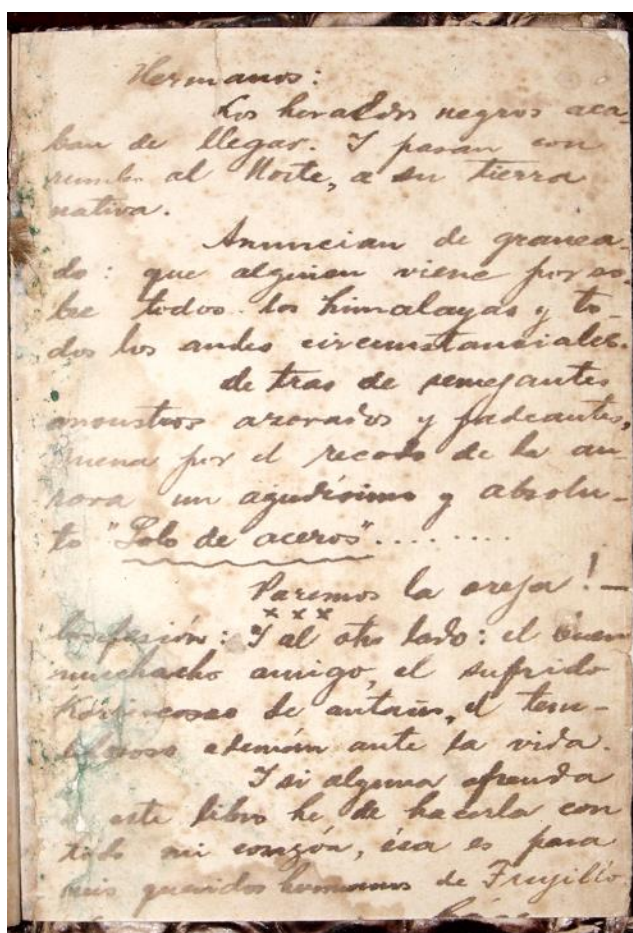 Hermanos:
Los heraldos negros aca-
ban de llegar. I pasan con
rumbo al Norte, a su tierra
nativa.
Anuncian de granea-
do: que alguien viene por so-
bre todos los himalayas y to-
dos los andes circunstanciales.
de tras de semejantes
monstruos azorados y jadeantes,
suena por el recodo de la au-
rora un agudísimo y absolu-
to "Solo de aceros".........
Paremos la oreja! —
x x x
Confesión: I al otro lado: el buen
muchacho amigo, el sufrido
Korriscosso de antaño, el tem-
bloroso ademán ante la vida.
I si alguna ofrenda
este libro he de hacerla con
todo mi corazón, ésa es para
mis queridos hermanos de Trujillo